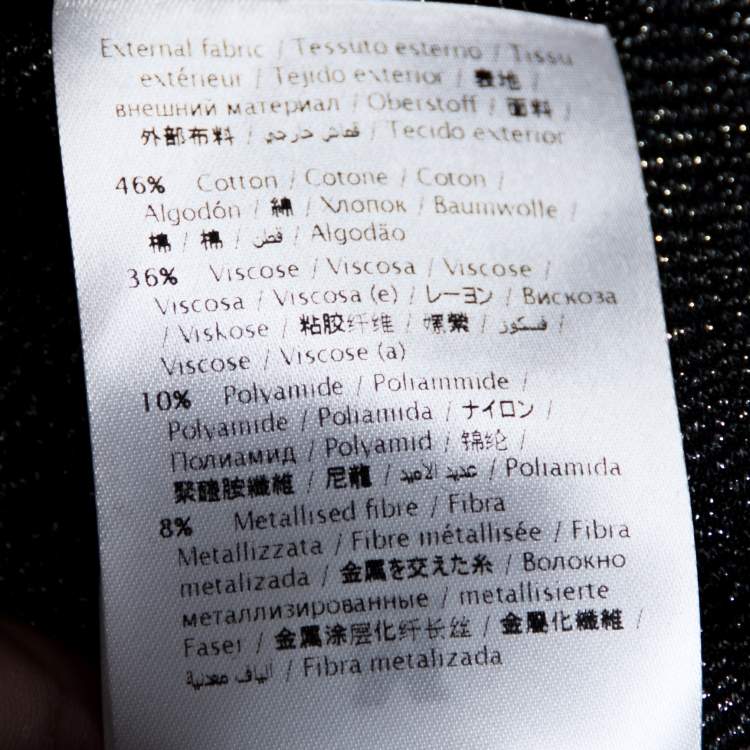 External fabric / Tessuto esterno / Tissu
extérieur / Tejido exterior / 表地 /
внешний материал / Oberstoff / 面料 /
外部布料 / قماش خارجي / Tecido exterior
46% Cotton / Cotone / Coton /
Algodón / 綿 / Хлопок / Baumwolle /
棉 / 棉 / قطن / Algodão
36% Viscose / Viscosa / Viscose /
Viscosa / Viscosa (e) / レーヨン / Вискоза
/ Viskose / 粘胶纤维 / 嫘縈 / فسكوز /
Viscose / Viscose (a)
10% Polyamide / Poliammide /
Polyamide / Poliamida / ナイロン /
Полиамид / Polyamid / 锦纶 /
聚醯胺纖維 / 尼龍 / عديد الاميد / Poliamida
8% Metallised fibre / Fibra
Metallizzata / Fibre métallisée / Fibra
metalizada / 金属を交えた糸 / Волокно
металлизированные / metallisierte
Faser / 金属涂层化纤长丝 / 金屬化纖維 /
الياف معدنية / Fibra metalizada